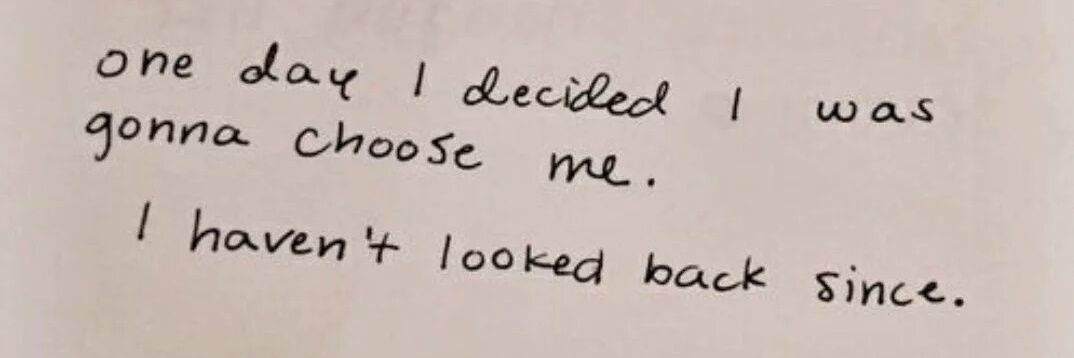 one day I decided I was
gonna choose me.
I haven't looked back since.